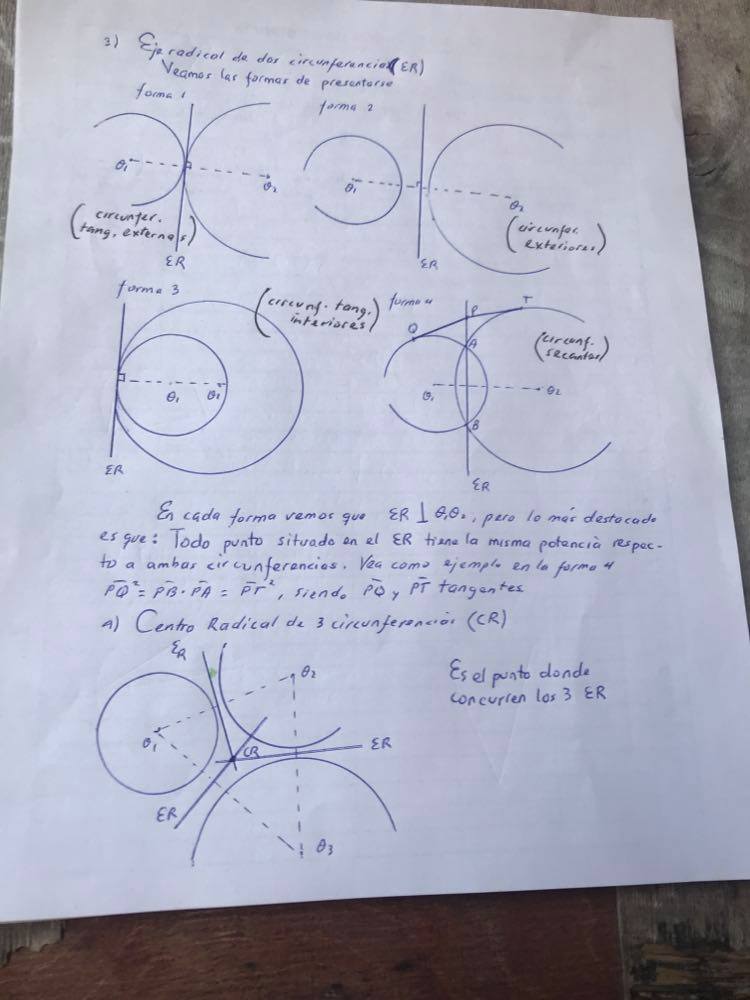 3) Eje radical de dos circunferencias (ER)
Veamos las formas de presentarse
forma 1
forma 2
θ1
θ2
θ1
θ2
(circunfer.
tang. externas)
(circunfer.
exteriores)
ER
ER
forma 3
(circunf. tang.
interiores)
forma 4
P
T
Q
A
(circunf.
secantes)
θ1
θ2
θ1
θ2
B
ER
ER
En cada forma vemos que ER ⊥ θ1θ2, pero lo más destacado
es que: Todo punto situado en el ER tiene la misma potencia respec-
to a ambas circunferencias. Vea como ejemplo en la forma 4
P̄Q̄² = P̄B̄ · P̄Ā = P̄T̄², siendo P̄Q̄ y P̄T̄ tangentes
A) Centro Radical de 3 circunferencias (CR)
ER
θ2
Es el punto donde
concurren los 3 ER
θ1
CR
ER
ER
θ3